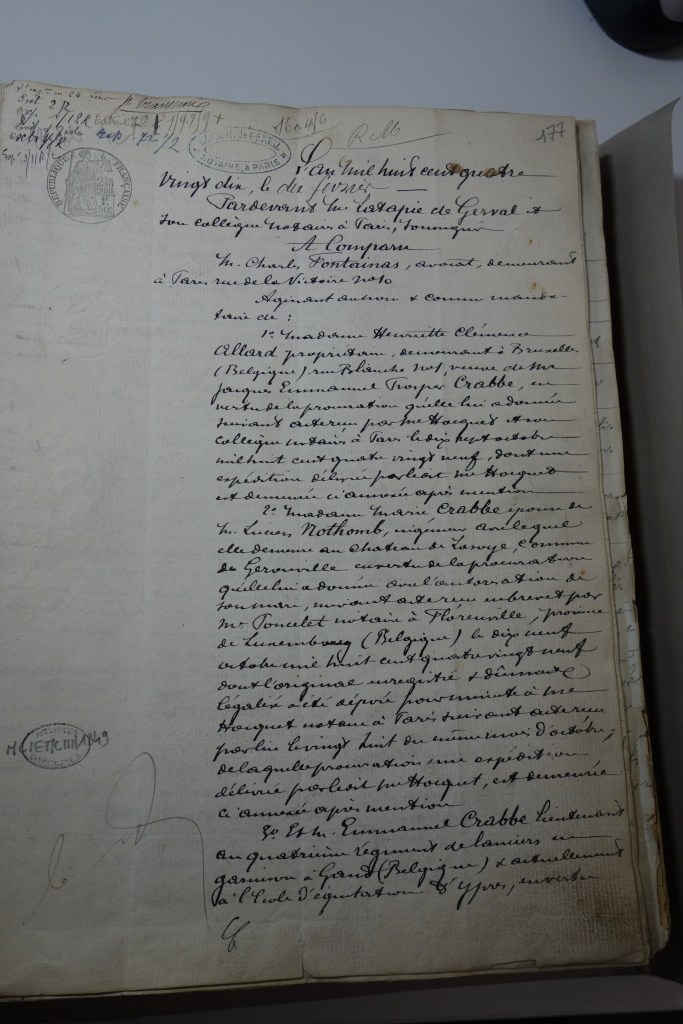 177
RÉPUBLIQUE FRANÇAISE
NOTAIRE À PARIS
L'an mil huit cent quatre
vingt dix, le dix février
Pardevant Me Latapie de Gerval et
son collègue notaires à Paris, soussignés
A Comparu
M. Charles Fontainas, avocat, demeurant
à Paris rue de la Victoire no
Agissant au nom & comme manda-
taire de :
1o Madame Henriette Clémence
Allard propriétaire, demeurant à Bruxelles
(Belgique) rue Blanche no 1, veuve de Mr
Jacques Emmanuel Prosper Crabbe, en
vertu de la procuration qu'elle lui a donnée
suivant acte reçu par Me Hocquet et son
collègue notaires à Paris le dix sept octobre
mil huit cent quatre vingt neuf, dont une
expédition délivrée par ledit Me Hocquet
est demeurée ci annexée après mention
2o Madame Marie Crabbe épouse de
M. Lucien Nothomb, ingénieur avec lequel
elle demeure au chateau de Losoye, commune
de Gerouville en vertu de la procuration
qu'elle lui a donnée avec l'autorisation de
son mari, suivant acte reçu en brevet par
Me Poncelet notaire à Florenville, province
de Luxembourg (Belgique) le dix neuf
octobre mil huit cent quatre vingt neuf
dont l'original enregistré & dûment
légalisé a été déposé pour minute à Me
Hocquet notaire à Paris suivant acte reçu
par lui le vingt huit du même mois d'octobre ;
de laquelle procuration une expédition
délivrée par ledit Me Hocquet, est demeurée
ci annexée après mention
3o Et M. Emmanuel Crabbe lieutenant
au quatrième régiment de lanciers en
garnison à Gand (Belgique) & actuellement
à l'Ecole d'équitation d'Ypres, en vertu